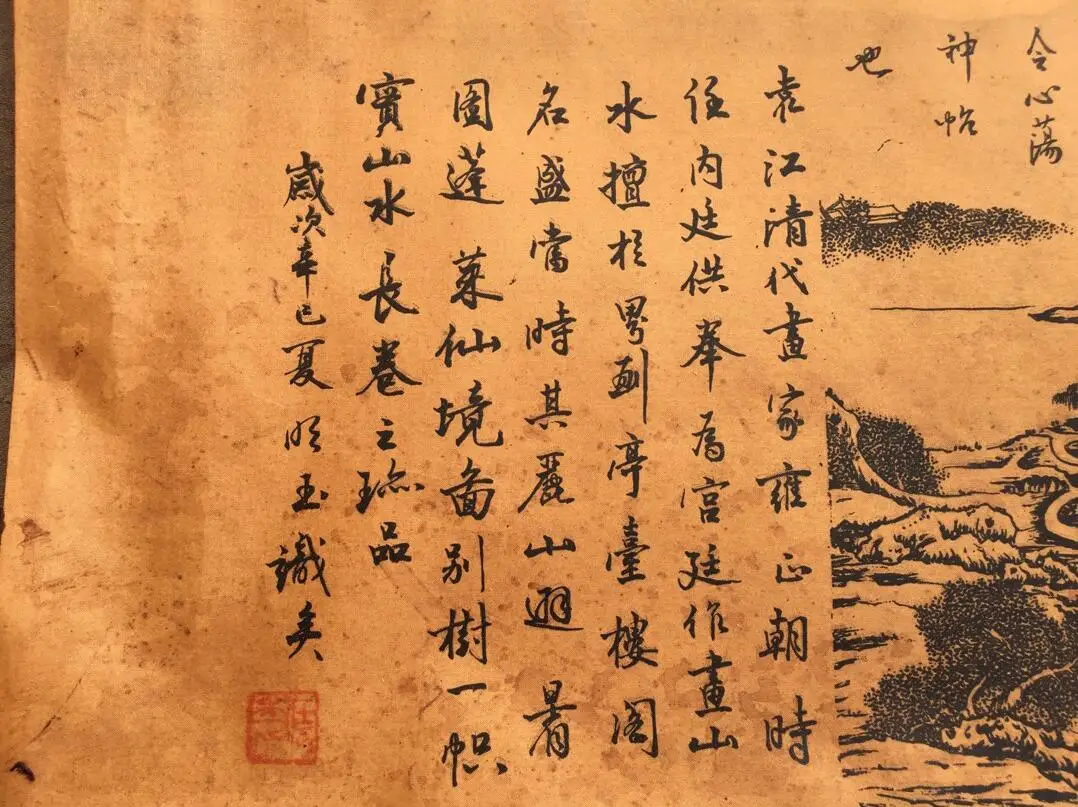 令心蕩
神怡
也
袁江清代畫家雍正朝時
任内廷供奉為宮廷作畫山
水擅於界劃亭臺樓閣
名盛當時其麗山避暑
圖蓬萊仙境圖别樹一幟
實山水長卷之珎品
歲次辛巳夏明玉識矣